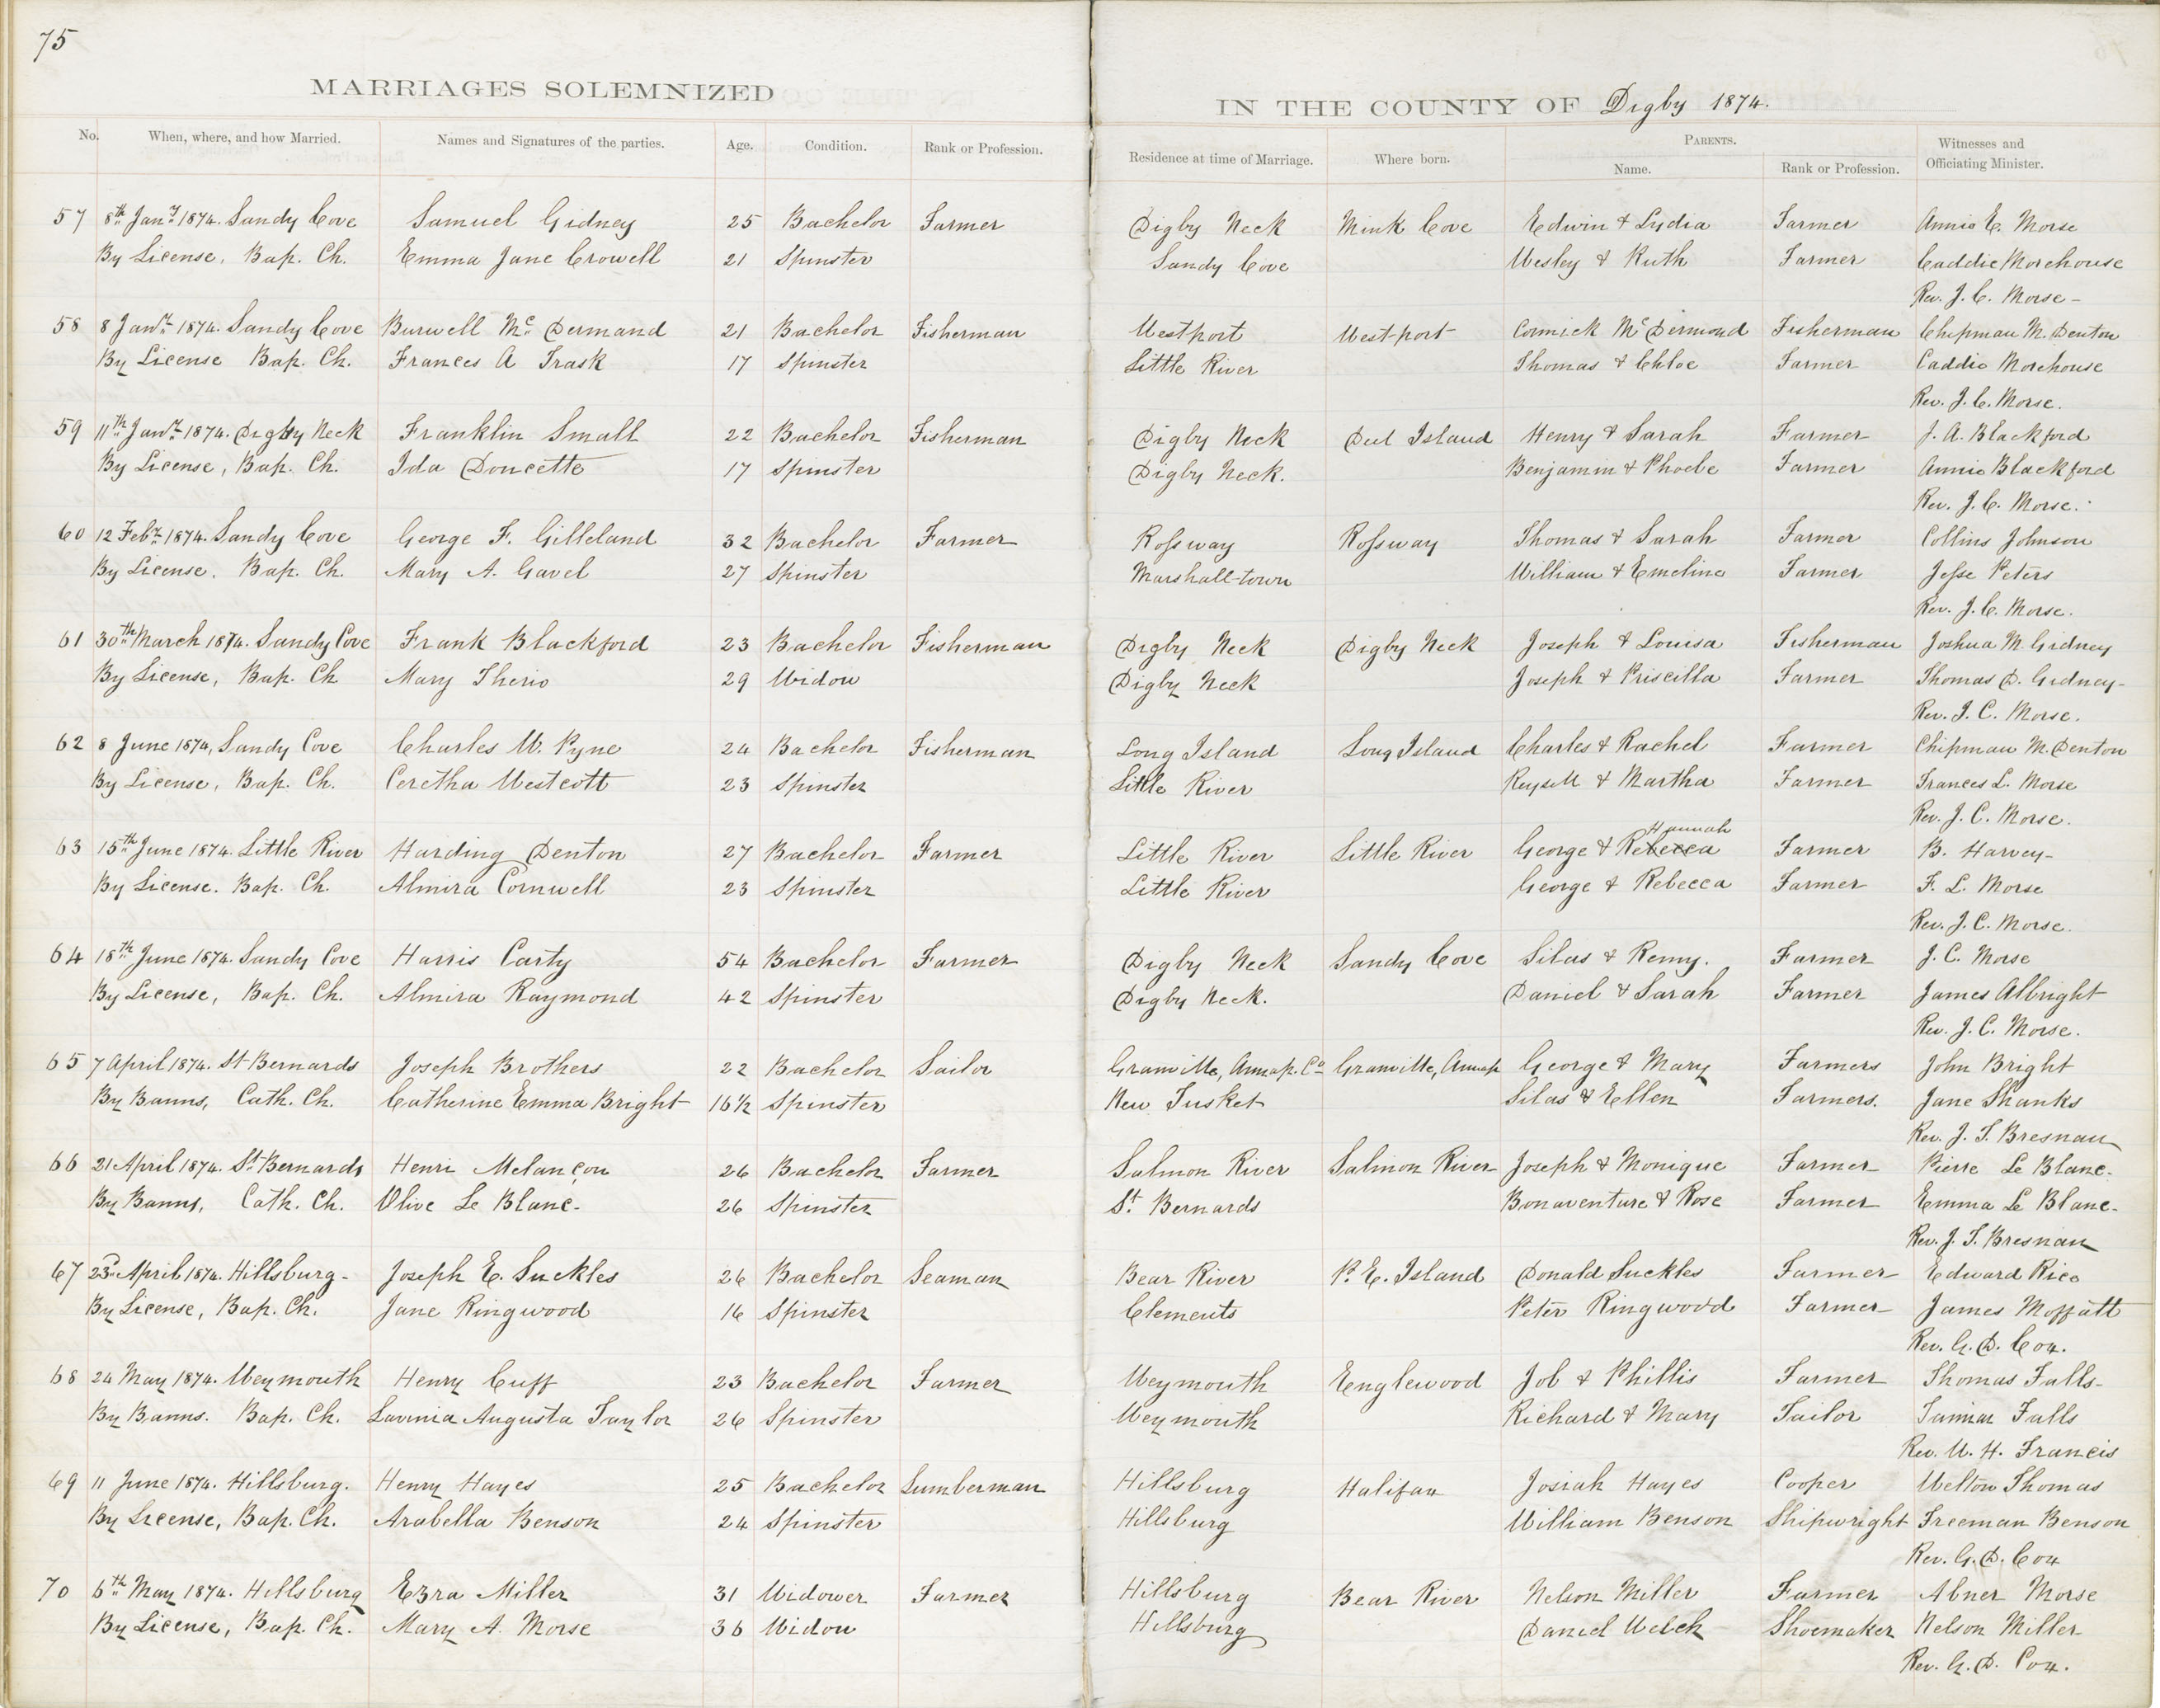 75
MARRIAGES SOLEMNIZED IN THE COUNTY OF Digby 1874.
No. When, where, and how Married. Names and Signatures of the parties. Age. Condition. Rank or Profession. Residence at time of Marriage. Where born. PARENTS. Name. Rank or Profession. Witnesses and Officiating Minister.
57 8th Jany 1874. Sandy Cove Samuel Gidney 25 Bachelor Farmer Digby Neck Mink Cove Edwin & Lydia Farmer Annie E. Morse
By License, Bap. Ch. Emma Jane Crowell 21 Spinster Sandy Cove Wesley & Ruth Farmer Caddie Morehouse
Rev. J. C. Morse -
58 8 Jany 1874. Sandy Cove Burwell Mc Dermand 21 Bachelor Fisherman Westport Westport Cormick Mc Dermond Fisherman Chipman M. Denton
By License Bap. Ch. Frances A Trask 17 Spinster Little River Thomas & Chloe Farmer Caddie Morehouse
Rev. J. C. Morse.
59 11th Jany 1874. Digby Neck Franklin Small 22 Bachelor Fisherman Digby Neck Deel Island Henry & Sarah Farmer J. A. Blackford
By License, Bap. Ch. Ida Doucette 17 Spinster Digby Neck. Benjamin & Phoebe Farmer Annie Blackford
Rev. J. C. Morse.
60 12 Feby 1874. Sandy Cove George F. Gilleland 32 Bachelor Farmer Rossway Rossway Thomas & Sarah Farmer Collins Johnson
By License. Bap. Ch. Mary A. Gavel 27 Spinster Marshall-town William & Emeline Farmer Jesse Peters
Rev. J. C. Morse.
61 30th March 1874. Sandy Cove Frank Blackford 23 Bachelor Fisherman Digby Neck Digby Neck Joseph & Louisa Fisherman Joshua M. Gidney
By License, Bap. Ch Mary Therio 29 Widow Digby Neck Joseph & Priscilla Farmer Thomas D. Gidney -
Rev. J. C. Morse.
62 8 June 1874, Sandy Cove Charles W. Pyne 24 Bachelor Fisherman Long Island Long Island Charles & Rachel Farmer Chipman M. Denton
By License, Bap. Ch. Ceretha Westcott 23 Spinster Little River & Martha Farmer Frances L. Morse
Rev. J. C. Morse.
Hannah
63 15th June 1874. Little River Harding Denton 27 Bachelor Farmer Little River Little River George & Rebecca Farmer B. Harvey -
By License. Bap. Ch. Almira Cornwell 23 Spinster Little River George & Rebecca Farmer F. L. Morse
Rev. J. C. Morse.
64 18th June 1874. Sandy Cove Harris Carty 54 Bachelor Farmer Digby Neck Sandy Cove Silas & Remy. Farmer J. C. Morse
By License, Bap. Ch. Almira Raymond 42 Spinster Digby Neck. Daniel & Sarah Farmer James Albright
Rev. J. C. Morse.
65 7 April 1874. St Bernards Joseph Brothers 22 Bachelor Sailor Granville, Annap. Co Granville, Annap George & Mary Farmers John Bright
By Banns, Cath. Ch. Catherine Emma Bright 16½ Spinster New Tusket Silas & Ellen Farmers. Jane Shanks
Rev. J. T. Bresnau
66 21 April 1874. St Bernards Henri Melançon 26 Bachelor Farmer Salmon River Salmon River Joseph & Monique Farmer Pierre Le Blanc.
By Banns, Cath. Ch. Olive Le Blanc. 26 Spinster St. Bernards Bonaventure & Rose Farmer Emma Le Blanc.
Rev. J. T. Bresnau
67 23d April 1874. Hillsburg - Joseph E. Suckles 26 Bachelor Seaman Bear River P. E. Island Donald Suckles Farmer Edward Rice
By License, Bap. Ch. Jane Ringwood 16 Spinster Clements Peter Ringwood Farmer James Moffatt
Rev. G. D. Cox.
68 24 May 1874. Weymouth Henry Cuff 23 Bachelor Farmer Weymouth Englewood Job & Phillis Farmer Thomas Falls -
By Banns. Bap. Ch. Lavinia Augusta Taylor 26 Spinster Weymouth Richard & Mary Tailor Falls
Rev. W. H. Francis
69 11 June 1874. Hillsburg. Henry Hayes 25 Bachelor Lumberman Hillsburg Halifax Josiah Hayes Cooper Welton Thomas
By License, Bap. Ch. Arabella Benson 24 Spinster Hillsburg William Benson Shipwright Freeman Benson
Rev. G. D. Cox
70 6th May 1874. Hillsburg Ezra Miller 31 Widower Farmer Hillsburg Bear River Nelson Miller Farmer Abner Morse
By License, Bap. Ch. Mary A. Morse 36 Widow Hillsburg Daniel Welch Shoemaker Nelson Miller
Rev. G. D. Cox.